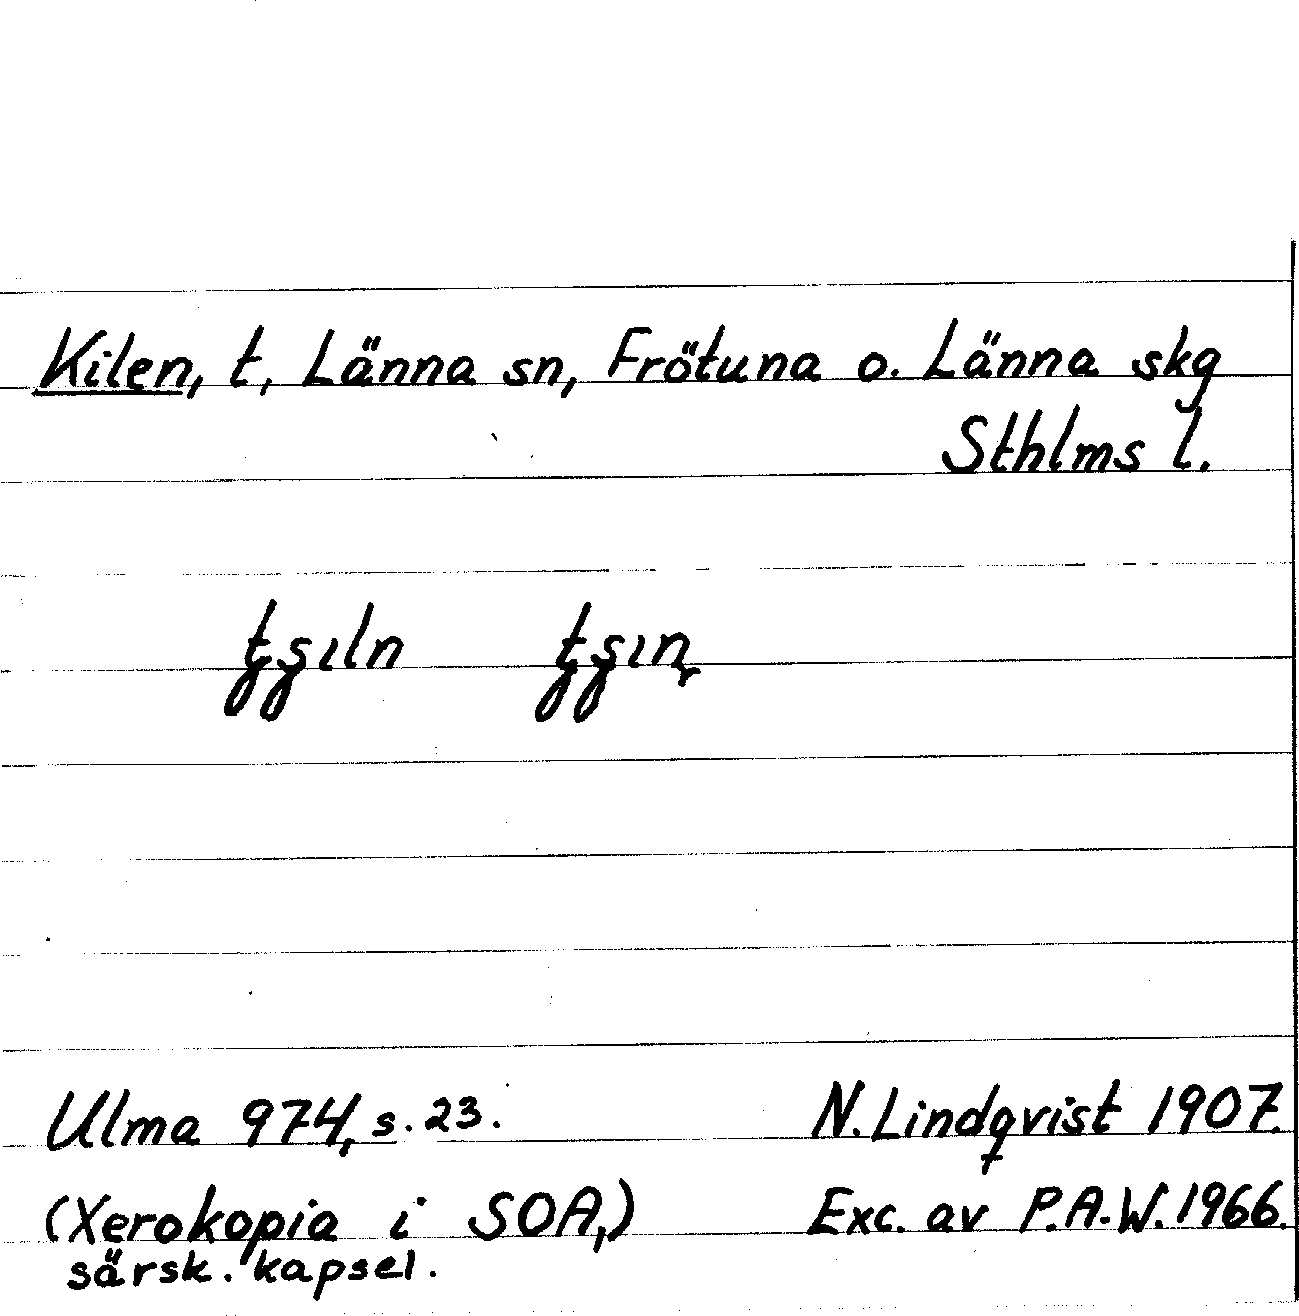 Kilen, t, Länna sn, Frötuna o. Länna skg
Sthlms l.
Ulma 974, s. 23.
N. Lindqvist 1907.
(Xerokopia i SOA,)
Exc. av P.A.W. 1966.
särsk. kapsel.